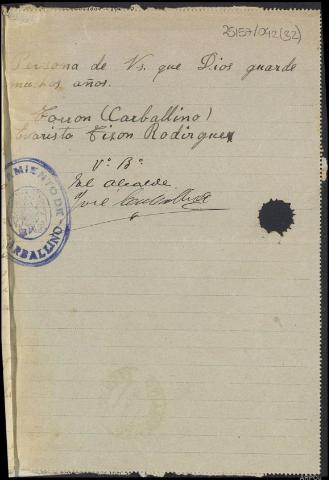 25157/042(32)
Persona de Vs. que Dios guarde
muchos años.
Torron (Carballino)
Evaristo Tizon Rodirguez
Vº Bº
El alcalde.
José
MIENTO DE
CARBALLINO